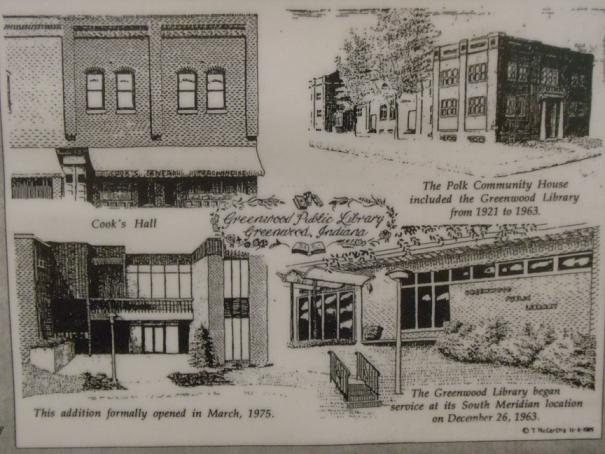 COOK'S GENERAL MERCHANDISE
Cook's Hall
The Polk Community House
included the Greenwood Library
from 1921 to 1963.
Greenwood Public Library
Greenwood, Indiana
GREENWOOD
PUBLIC
LIBRARY
This addition formally opened in March, 1975.
The Greenwood Library began
service at its South Meridian location
on December 26, 1963.
© T. McCarthy